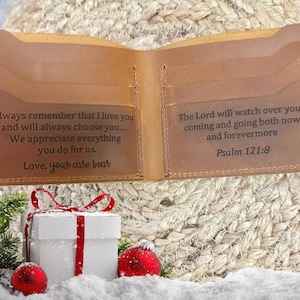 always remember that I love you
and will always choose you....
We appreciate everything
you do for us.
Love, your care bear
The Lord will watch over you
coming and going both now
and forevermore
Psalm 121:8